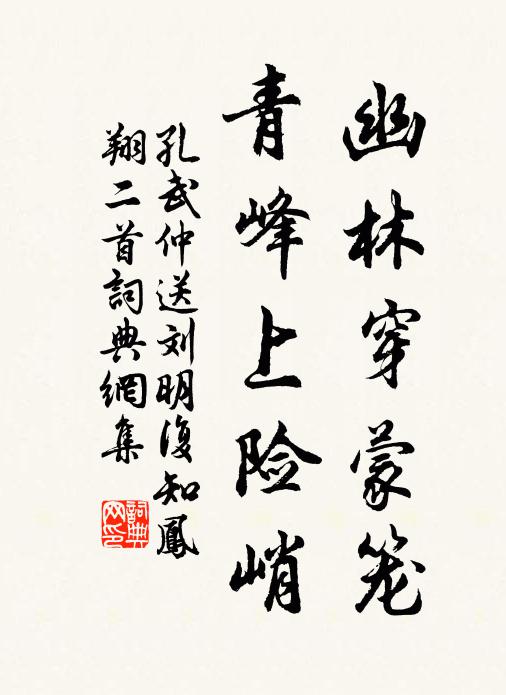 幽林穿蒙笼
青峰上险峭
孔武仲送刘明复知凤
翔二首詞典網集
詞典网印